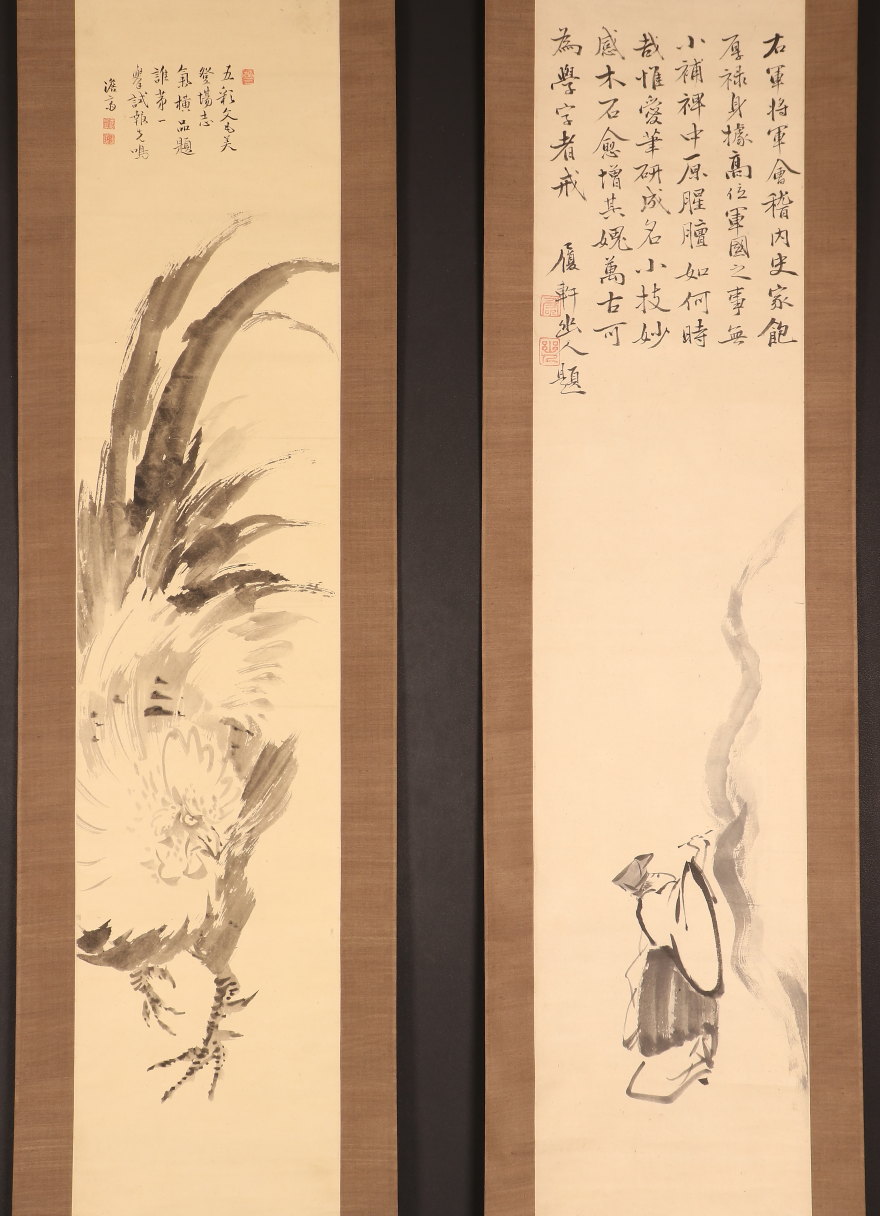 右軍将軍會稽内史家飽
厚禄身據髙位軍國之事無
小補裨中原腥膻如何時
哉惟愛筆研成名小技妙
感木石愈增其媿萬古可
為學字者戒 履軒幽人題
五彩文毛美
登場志
氣横品題
誰第一
試報